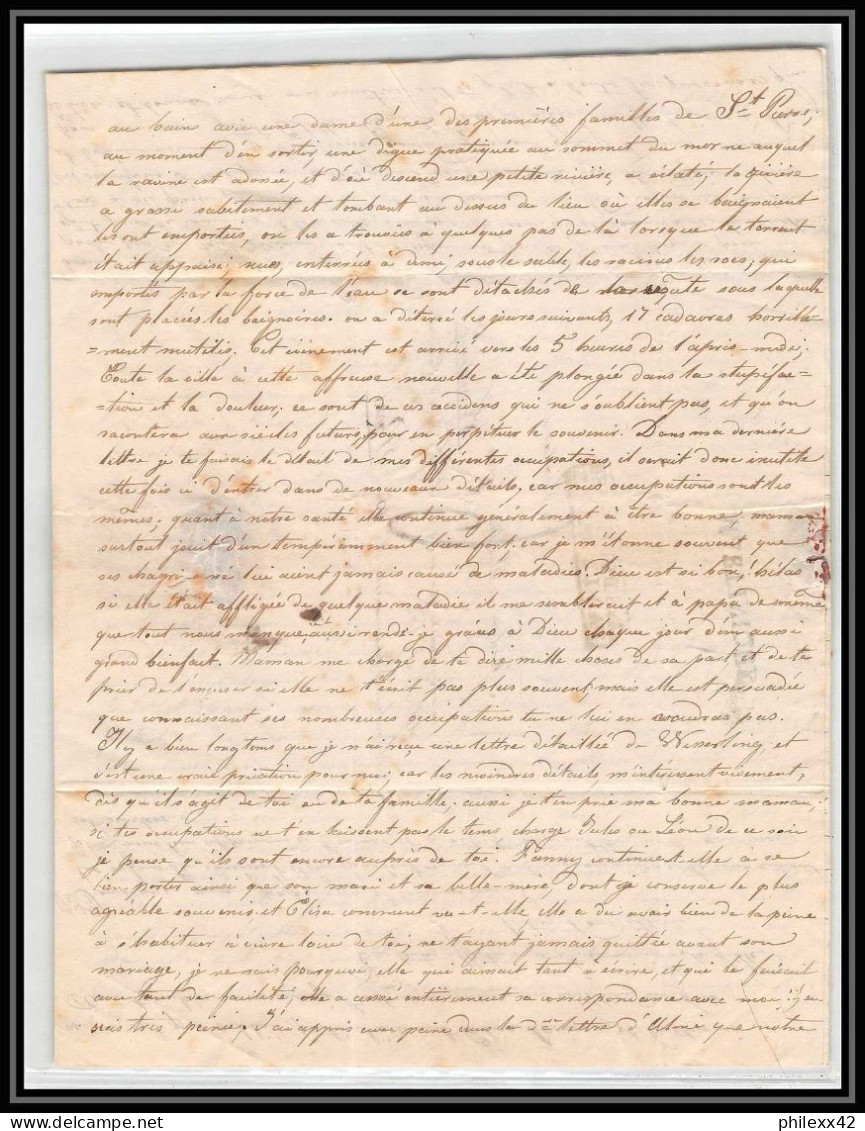 au bain avec une dame d'une des premières familles de St Pierre;
au moment d'en sortir, une digue pratiquée au sommet du morne auquel
la ravine est adossée, et d'où descend une petite rivière, a éclaté; la rivière
a grossi subitement et tombant au dessus du lieu où elles se baignaient
les ont emportées, on les a trouvées à quelques pas de là lorsque le torrent
était appaisé; nues, enterrées à demi, sous le sable, les racines les rocs; qui
emportés par la force de l'eau se sont détachés de la voûte sous laquelle
sont placées les baignoires. on a déterré les jours suivants, 17 cadavres horrible-
=ment mutilés. Cet évènement est arrivé vers les 5 heures de l'après-midi.
Toute la ville à cette affreuse nouvelle a été plongée dans la stupéfac-
-tion et la douleur; ce sont de ces accidens qui ne s'oublient pas, et qu'on
racontera aux siècles futurs, pour en perpétuer le souvenir. Dans ma dernière
lettre je te faisais le détail de mes différentes occupations, il serait donc inutile
cette fois ci d'entrer dans de nouveaux détails, car mes occupations sont les
mêmes; quant à notre santé elle continue généralement à être bonne, maman
surtout jouit d'un tempéramment bien fort. car je m'étonne souvent que
ses chagrins ne lui aient jamais causé de maladies. Dieu est si bon! hélas
si elle était affligée de quelque maladie il me semblerait et à papa de même
que tout nous manque, aussi rends-je grâces à Dieu chaque jour d'un aussi
grand bienfait. Maman me charge de te dire mille choses de sa part et de te
prier de l'excuser si elle ne t'écrit pas plus souvent, mais elle est persuadée
que connaissant ses nombreuses occupations tu ne lui en voudras pas.
Il y a bien longtems que je n'ai reçu une lettre détaillée de Wesserling, et
c'est une vraie privation pour moi; car les moindres détails, m'intéressent vivement,
dès qu'il s'agit de toi ou de ta famille; aussi je t'en prie ma bonne maman,
si tes occupations ne t'en laissent pas le tems charge Jules ou Léon de ce soin
je pense qu'ils sont encore auprès de toi. Fanny continue t-elle à se
bien porter ainsi que son mari et sa belle-mère, dont je conserve le plus
agréable souvenir. et Elisa comment va-t-elle elle a du avoir bien de la peine
à s'habituer à vivre loin de toi, ne t'ayant jamais quittée avant son
mariage, je ne sais pourquoi, elle qui aimait tant à écrire, et qui le faisait
avec tant de facilité, elle a cessé entièrement sa correspondance avec moi; j'en
suis très peinée. J'ai appris avec peine dans la dre lettre d'Aimé que notre
philexx42